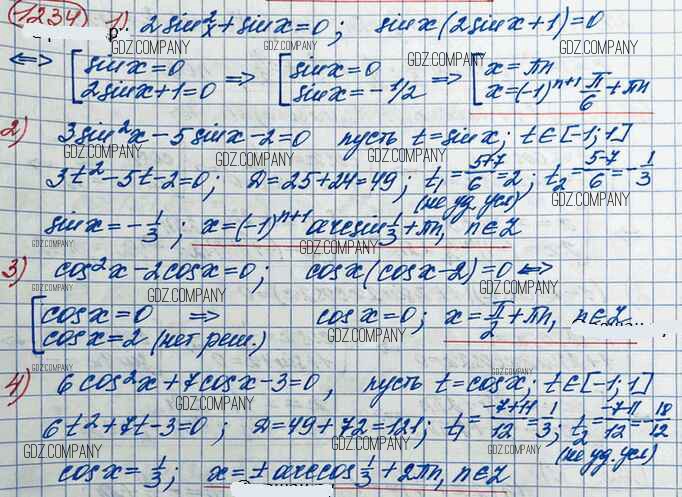 1234 1) 2sin²x + sinx = 0; sinx(2sinx+1)=0
GDZ.COMPANY GDZ.COMPANY GDZ.COMPANY
⟺ [ sinx = 0 ⇒ [ sinx = 0 ⇒ [ x = πn
2sinx+1=0 sinx = -1/2 x = (-1)ⁿ⁺¹ π/6 + πn
GDZ.COMPANY GDZ.COMPANY GDZ.COMPANY
2) 3sin²x - 5sinx - 2 = 0 пусть t = sinx; t∈[-1;1]
GDZ.COMPANY GDZ.COMPANY GDZ.COMPANY
3t² - 5t - 2 = 0; D = 25+24 = 49; t₁ = (5+7)/6 = 2; t₂ = (5-7)/6 = -1/3
(не уд. усл) GDZ.COMPANY
sinx = -1/3; x = (-1)ⁿ⁺¹ arcsin 1/3 + πn, n∈Z
GDZ.COMPANY GDZ.COMPANY
3) cos²x - 2cosx = 0; cosx(cosx-2) = 0 ⟺
GDZ.COMPANY GDZ.COMPANY GDZ.COMPANY
[ cosx = 0 ⇒ cosx = 0; x = π/2 + πn, n∈Z
cosx = 2 (нет реш.) GDZ.COMPANY
GDZ.COMPANY
4) 6cos²x + 7cosx - 3 = 0, пусть t = cosx; t∈[-1;1]
GDZ.COMPANY
6t² + 7t - 3 = 0; D = 49+72 = 121; t₁ = (-7+11)/12 = 1/3; t₂ = (-7-11)/12 = -18/12
GDZ.COMPANY GDZ.COMPANY GDZ.COMPANY (не уд. усл)
cosx = 1/3; x = ± arccos 1/3 + 2πn, n∈Z